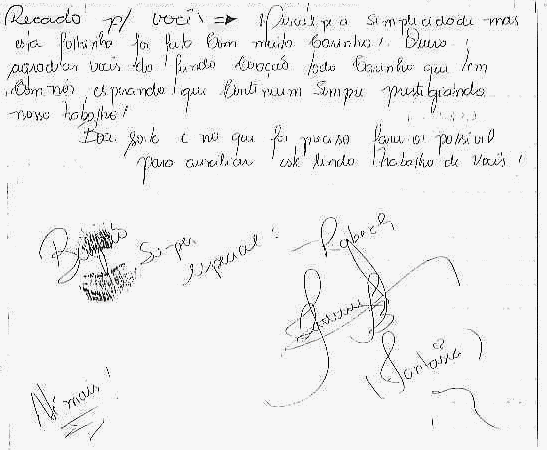 Recado p/ vocês ⇒ Desculpe a simplicidade mas
esta folhinha foi feito com muito carinho! Quero
agradecer vocês do fundo coração todo carinho que tem
com nós, esperando que continuem sempre prestigiando
nosso trabalho!
Boa sorte e no que for preciso farei o possível
para auxiliar este lindo trabalho de vocês!
super
especial!
(Santaiza)
Né mais!